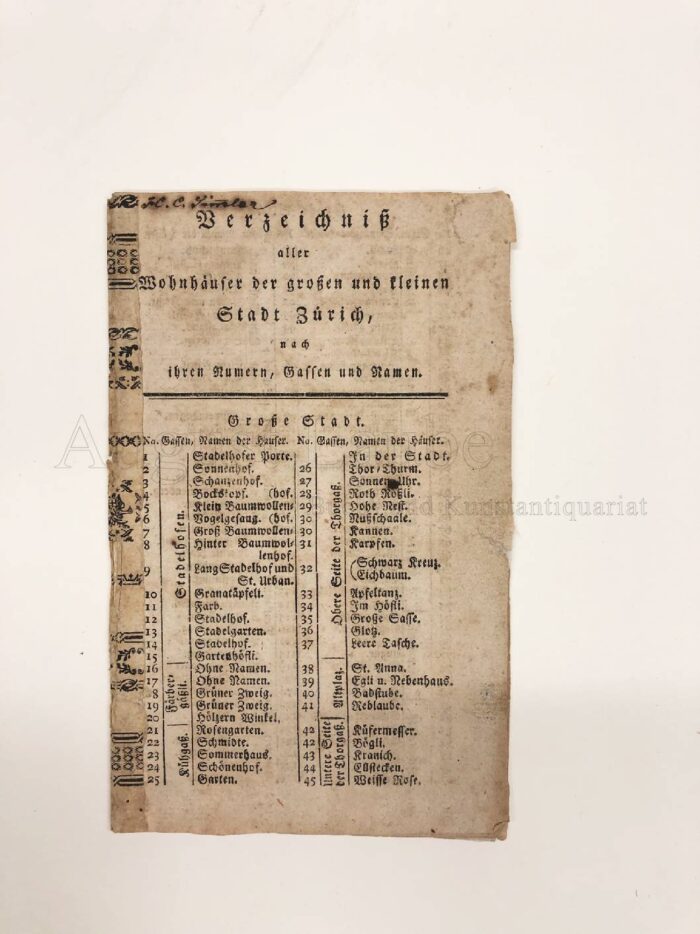 H. C. Simmler
Verzeichniß
aller
Wohnhäuser der großen und kleinen
Stadt Zürich,
nach
ihren Numern, Gassen und Namen.
Große Stadt.
No. Gassen, Namen der Häuser.
Stadelhofen.
1 Stadelhofer Porte.
2 Sonnenhof.
3 Schanzenhof.
4 Bockskopf. (hof.
5 Klein Baumwollen-
6 Vogelgesang. (hof.
7 Groß Baumwollen-
8 Hinter Baumwol-
lenhof.
9 Lang Stadelhof und
St. Urban.
10 Granatäpfeli.
11 Farb.
12 Stadelhof.
13 Stadelgarten.
14 Stadelhof.
15 Gartenhöfli.
Färber-
gäßli.
16 Ohne Namen.
17 Ohne Namen.
18 Grüner Zweig.
19 Grüner Zweig.
20 Hölzern Winkel.
Kühgaß.
21 Rosengarten.
22 Schmidte.
23 Sommerhaus.
24 Schönenhof.
25 Garten.
No. Gassen, Namen der Häuser.
In der Stadt.
Obere Seite der Thorgaß.
26 Thor-Thurm.
27 Sonnen-Uhr.
28 Roth Rößli.
29 Hohe Nest.
30 Nußschaale.
30 Kannen.
31 Karpfen.
32 (Schwarz Kreuz.
(Eichbaum.
33 Apfeltanz.
34 Im Höfli.
35 Große Sasse.
36 Glotz.
37 Leere Tasche.
38 St. Anna.
39 Egli u. Nebenhaus.
40 Badstube.
41 Reblaube.
Untere Seite
der Thorgaß.
42 Küfermesser.
42 Bögli.
43 Kranich.
44 Eüstecken.
45 Weisse Rose.
Kunstantiquariat